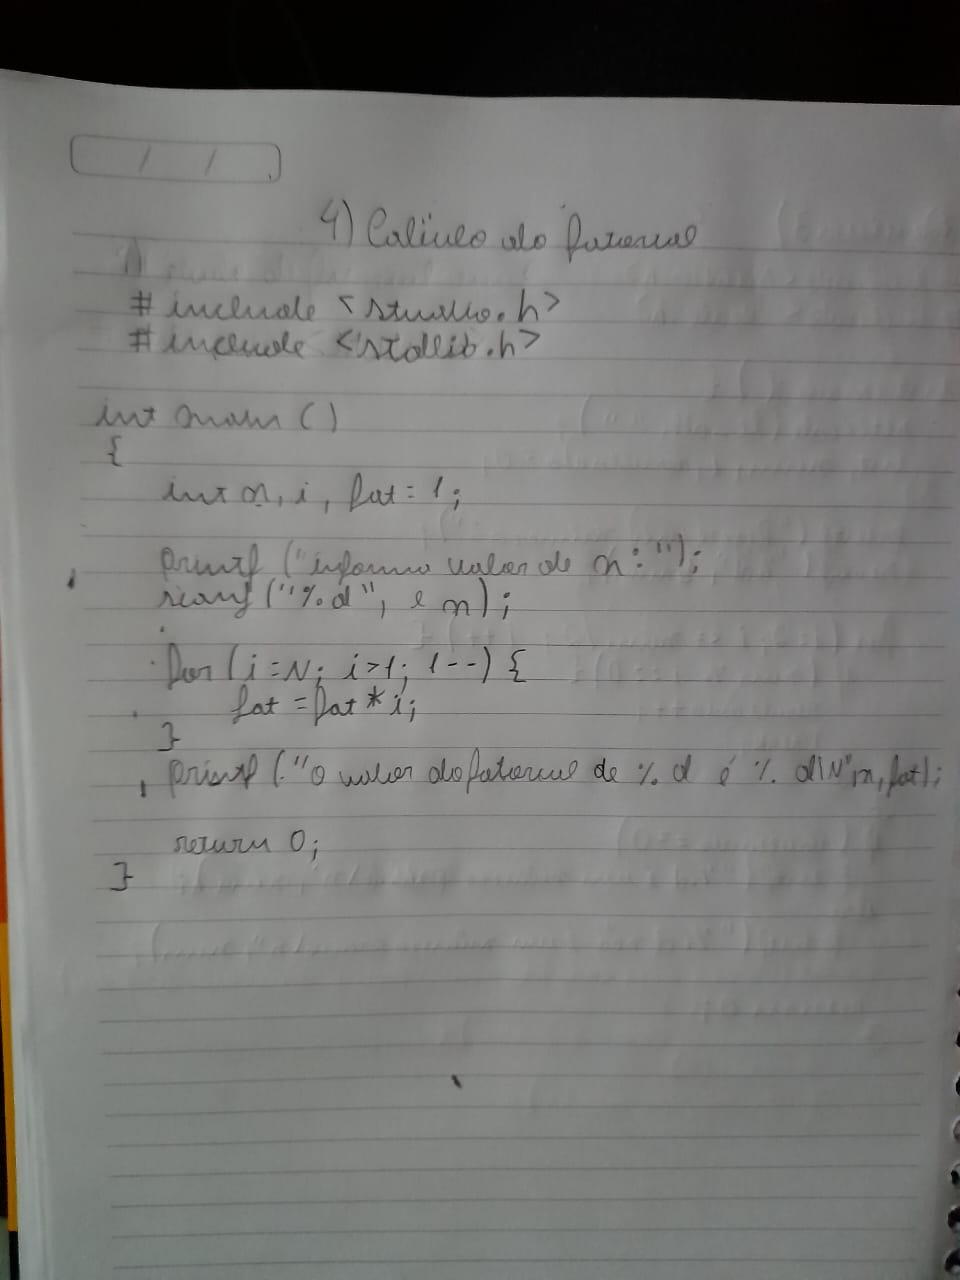 / /
4) Calculo do fatorial
# include <studio.h>
# include <stdlib.h>
int main ()
{
int n, i, fat = 1;
printf ("informe valor de n: ");
scanf ("%d", e n);
for (i = N; i > 1; 1--) {
fat = fat * i;
}
printf ("o valor do fatorial de % d é % d\N" n, fat);
return 0;
}